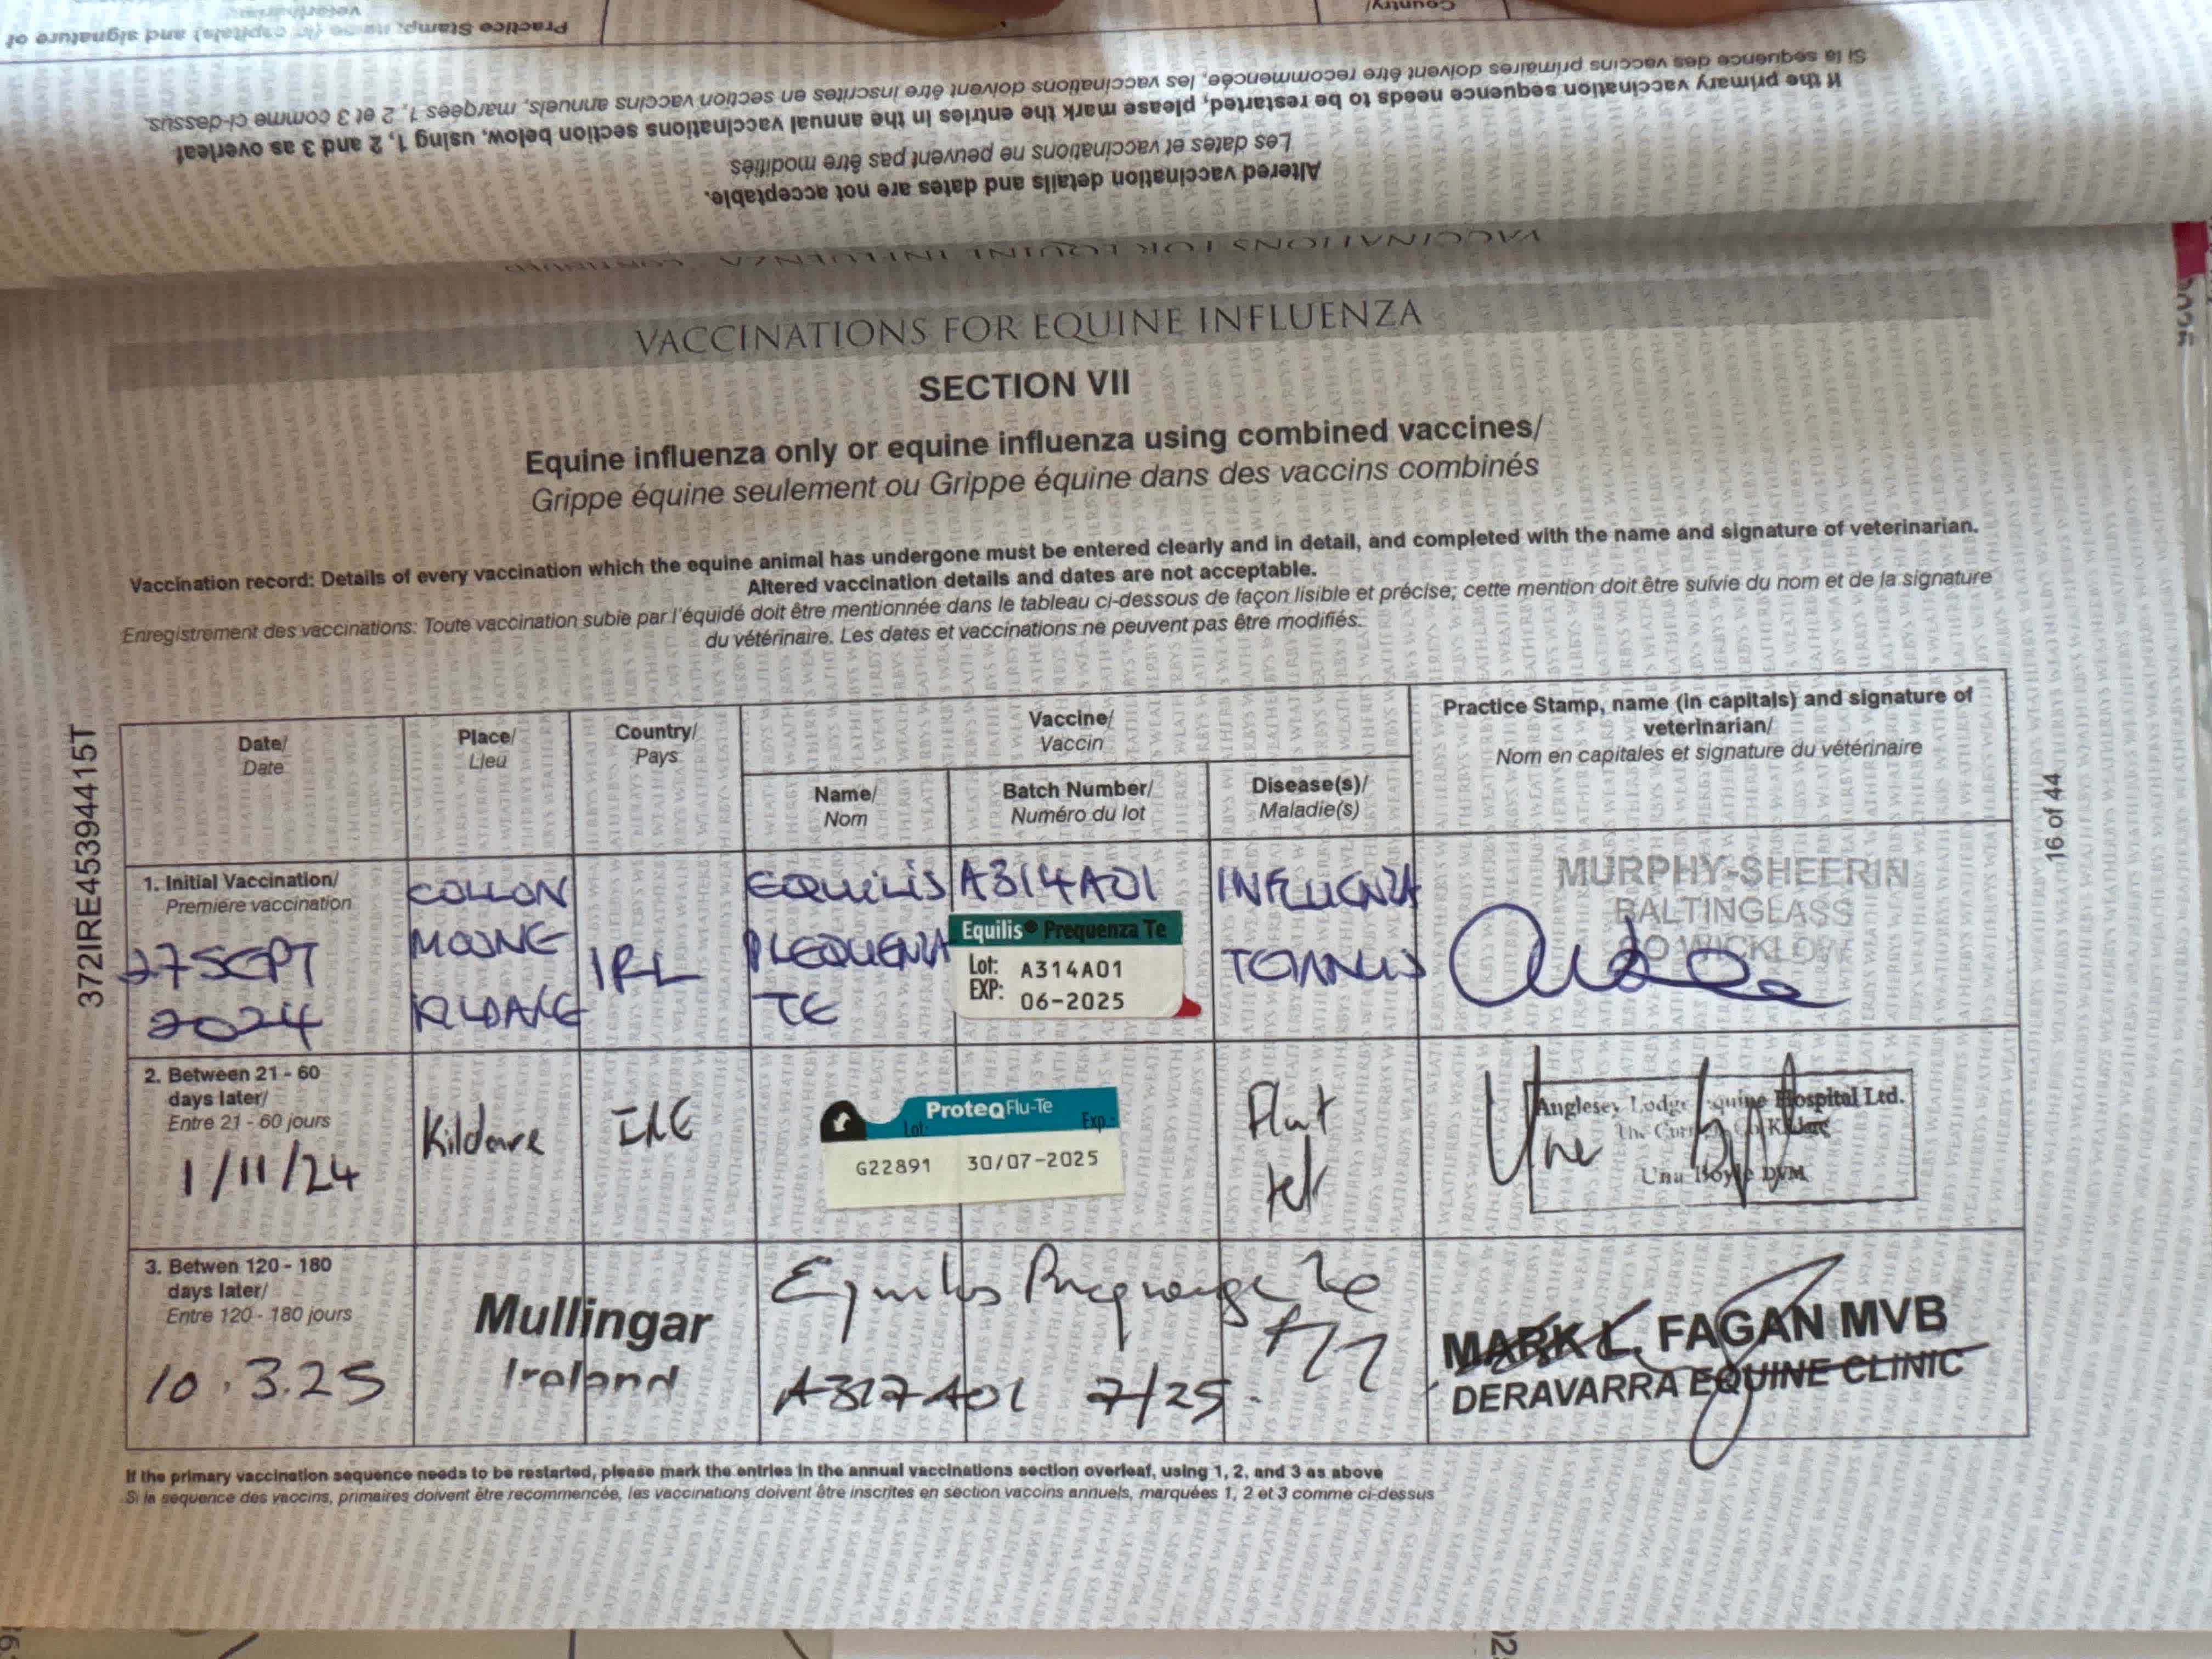 Practice Stamp, name (in capitals) and signature of
veterinarian/
Country/
Si la sequence des vaccins primaires doivent être recommencée, les vaccinations doivent être inscrites en section vaccins annuels, marquées 1, 2 et 3 comme ci-dessus.
If the primary vaccination sequence needs to be restarted, please mark the entries in the annual vaccinations section below, using 1, 2 and 3 as overleaf
Les dates et vaccinations ne peuvent pas être modifiés
Altered vaccination details and dates are not acceptable.
VACCINATIONS FOR EQUINE INFLUENZA - CONTINUED
VACCINATIONS FOR EQUINE INFLUENZA
SECTION VII
Equine influenza only or equine influenza using combined vaccines/
Grippe équine seulement ou Grippe équine dans des vaccins combinés
Vaccination record: Details of every vaccination which the equine animal has undergone must be entered clearly and in detail, and completed with the name and signature of veterinarian.
Altered vaccination details and dates are not acceptable.
Enregistrement des vaccinations: Toute vaccination subie par l'équidé doit être mentionnée dans le tableau ci-dessous de façon lisible et précise; cette mention doit être suivie du nom et de la signature
du vétérinaire. Les dates et vaccinations ne peuvent pas être modifiés.
372IRE45394415T
16 of 44
Date/
Date
Place/
Lieu
Country/
Pays
Vaccine/
Vaccin
Name/
Nom
Batch Number/
Numéro du lot
Disease(s)/
Maladie(s)
Practice Stamp, name (in capitals) and signature of
veterinarian/
Nom en capitales et signature du vétérinaire
1. Initial Vaccination/
Première vaccination
27 SEPT
2024
COLLON
MOONE
KILDARE
IRL
EQUILIS
PREQUENZA
TE
A314A01
Equilis® Prequenza Te
Lot: A314A01
EXP: 06-2025
INFLUENZA
TETANUS
MURPHY-SHEERIN
BALTINGLASS
CO WICKLOW
2. Between 21 - 60
days later/
Entre 21 - 60 jours
1/11/24
Kildare
IRE
ProteqFlu-Te
Lot: Exp.:
G22891 30/07-2025
Flu+
tet
Anglesey Lodge Equine Hospital Ltd.
The Curragh Co Kildare
Una Boyle DVM
3. Betwen 120 - 180
days later/
Entre 120 - 180 jours
10.3.25
Mullingar
Ireland
Equilis Prequenza Te
A317A01 7/25
MARK L. FAGAN MVB
DERAVARRA EQUINE CLINIC
If the primary vaccination sequence needs to be restarted, please mark the entries in the annual vaccinations section overleaf, using 1, 2, and 3 as above
Si la sequence des vaccins, primaires doivent être recommencée, les vaccinations doivent être inscrites en section vaccins annuels, marquées 1, 2 et 3 comme ci-dessus